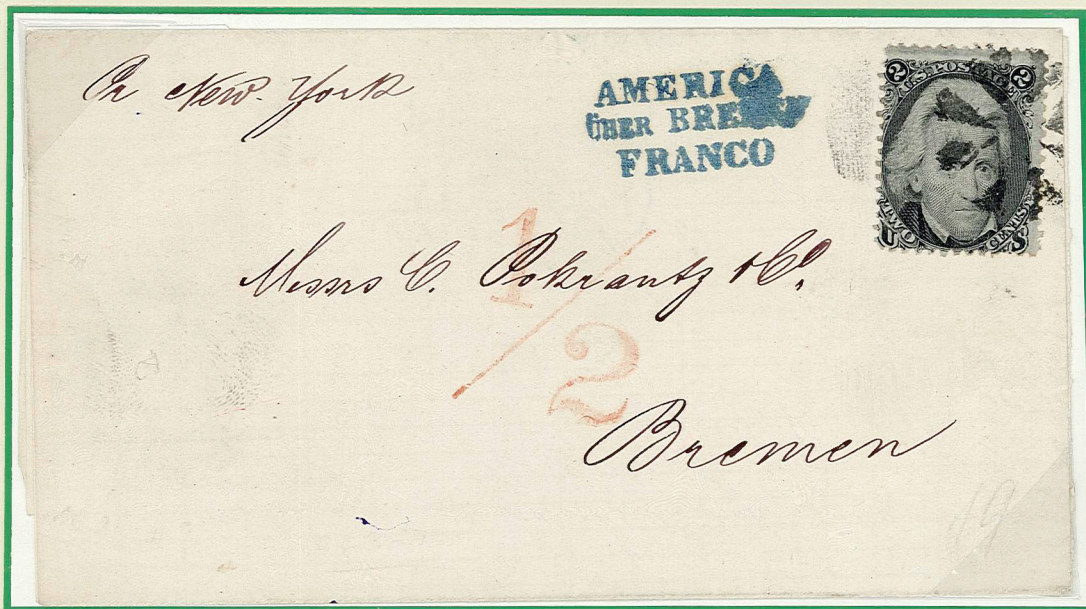 Pr New-York
AMERICA
ÜBER BREMEN
FRANCO
2 U.S. POSTAGE 2
TWO CENTS
U S
Messrs C. Pokrantz & Co.
1/2
Bremen
19